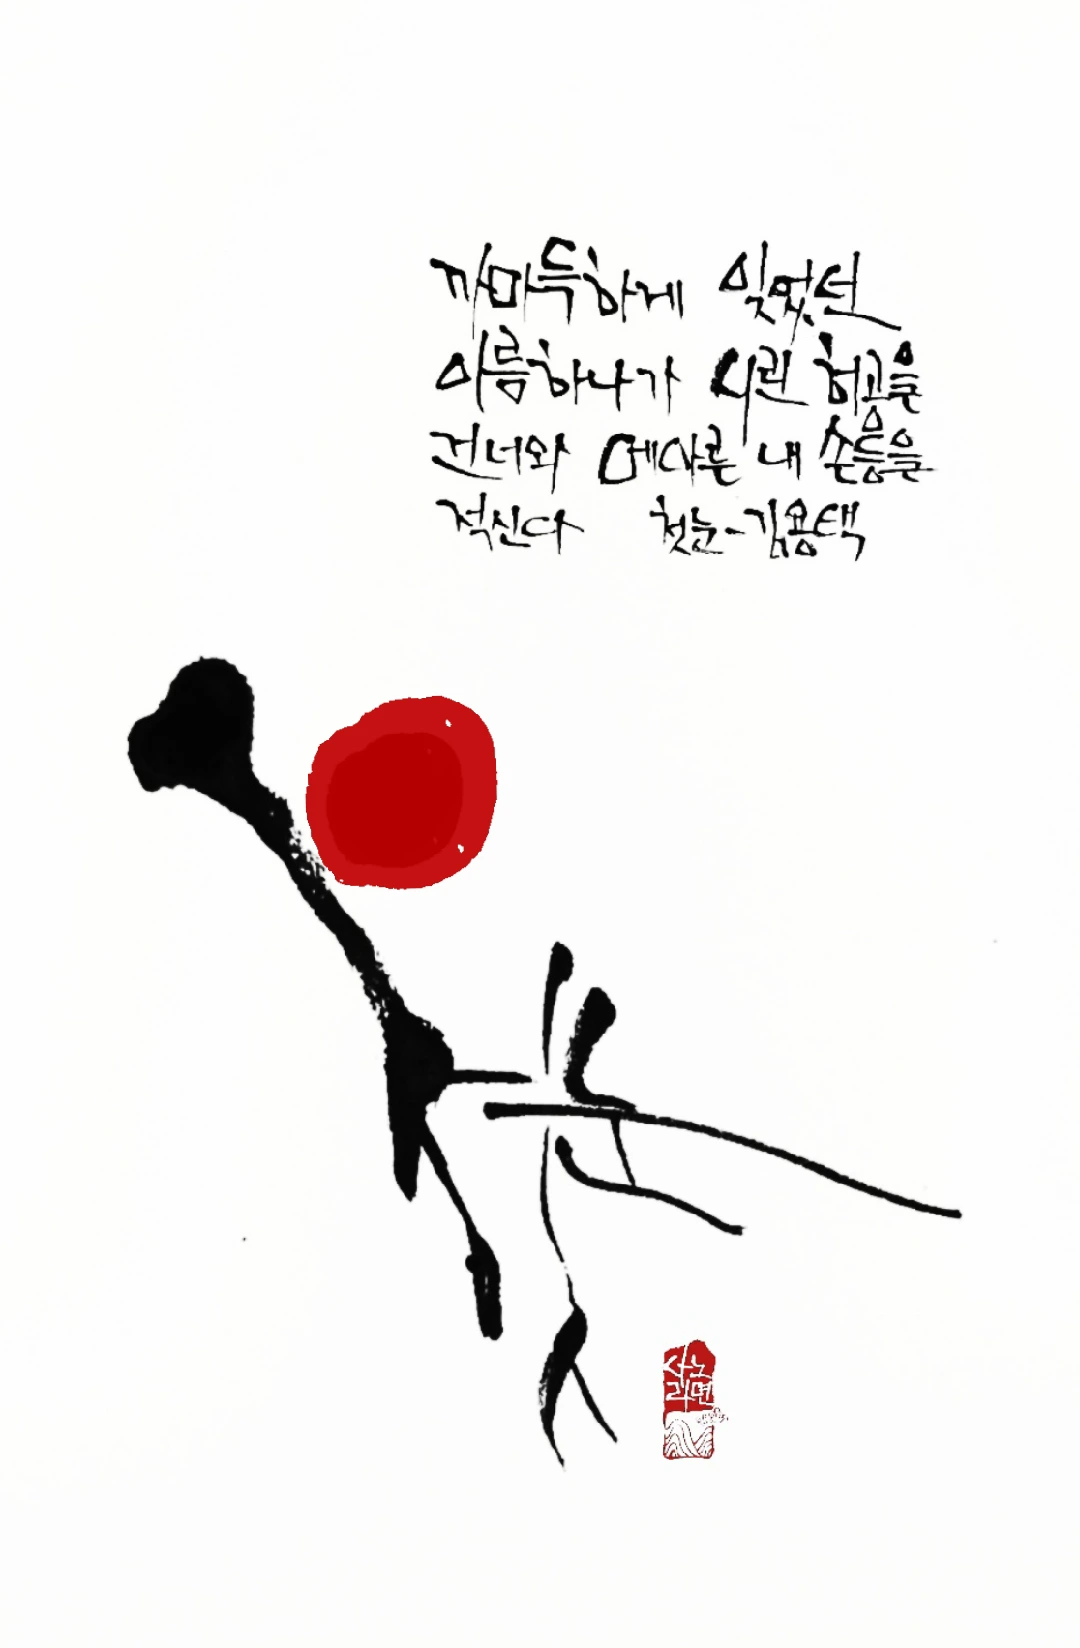 까마득하게 잊었던
이름하나가 시린 허공을
건너와 메마른 내 손등을
적신다 첫눈-김용택
사노
라면